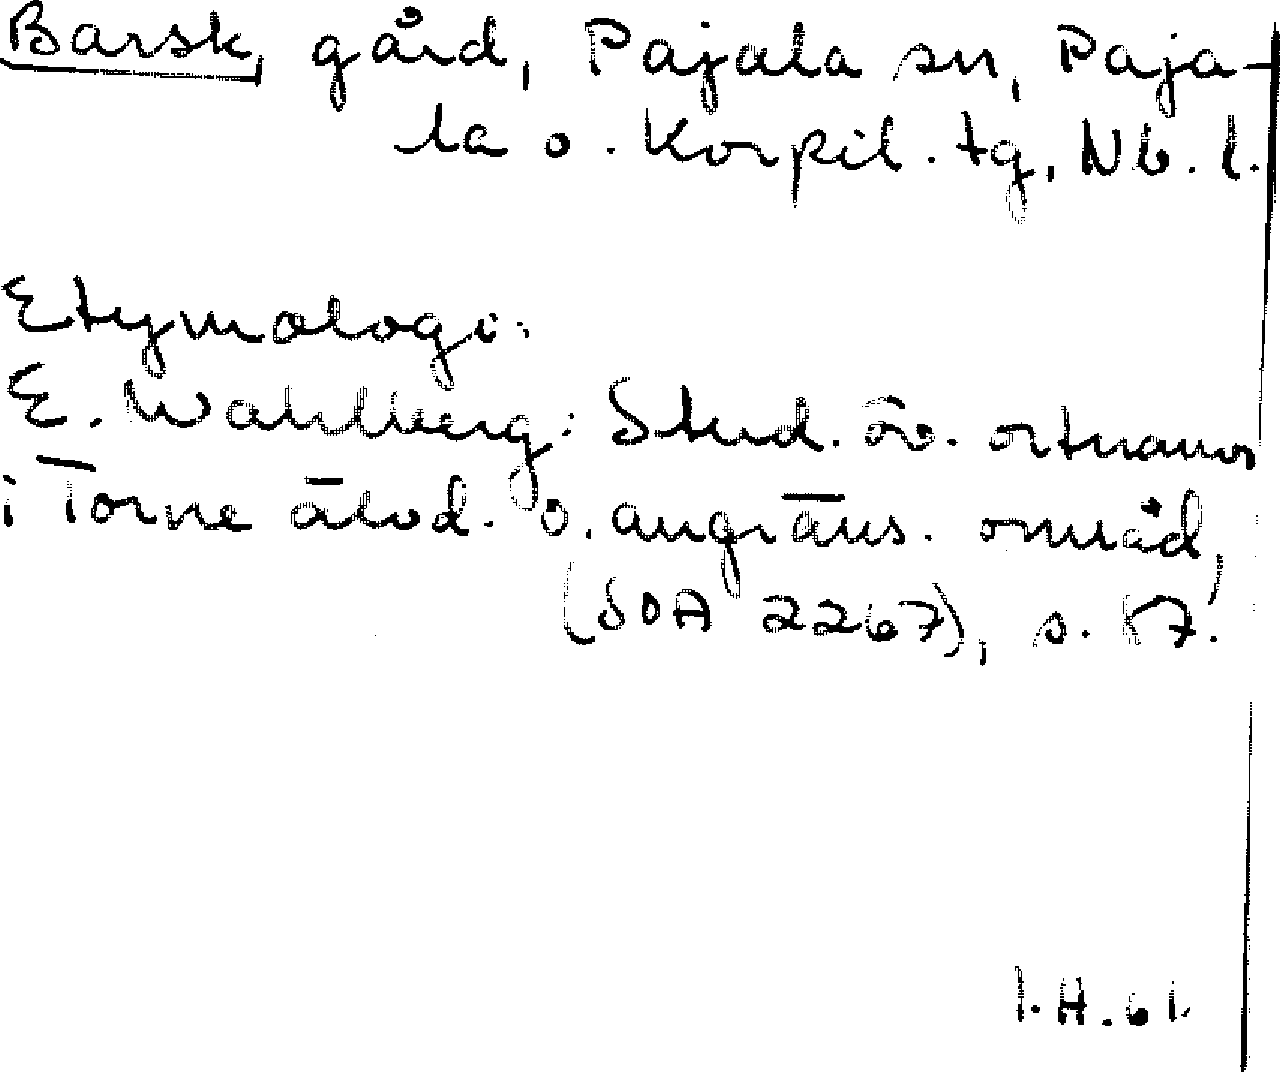 Barsk, gård, Pajala sn, Paja-
la o. Korpil. tg, Nb. l.
Etymologi:
E. Wahlberg: Stud. öv. ortnamn
i Torne älvd. o. angräns. områd,
(SOA 2267), s. 57.
I.H.61.